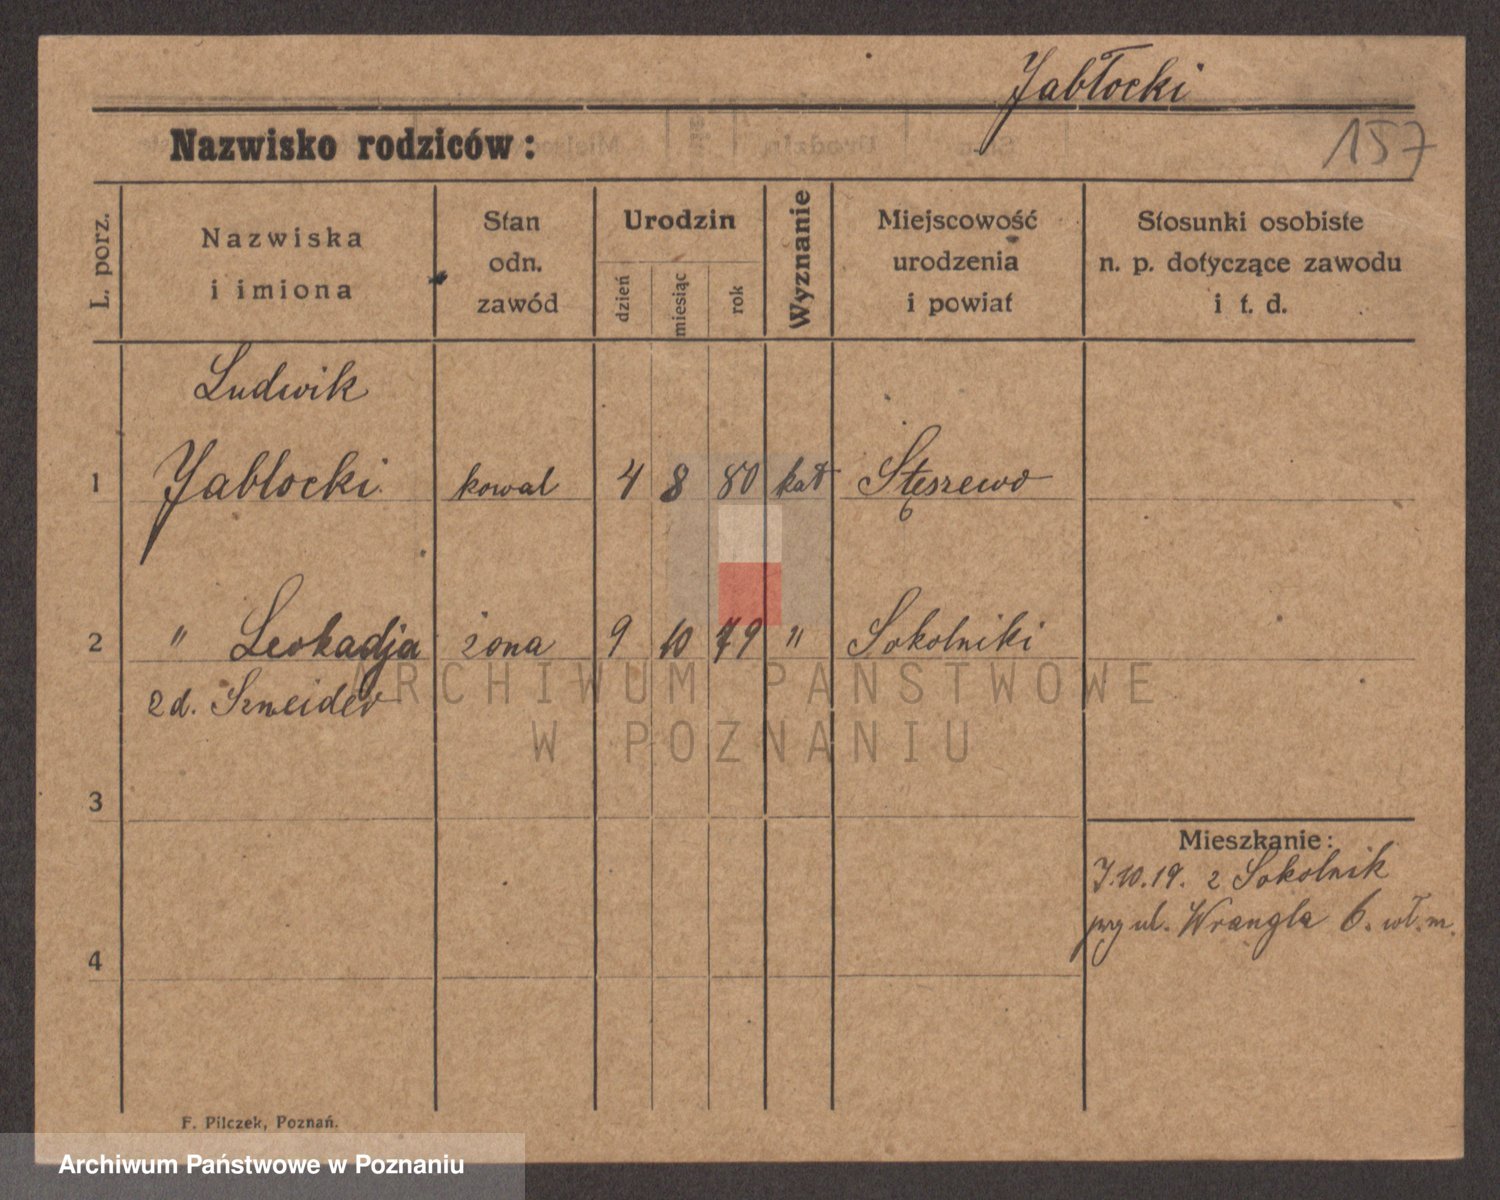 Jabłocki
157
Nazwisko rodziców:
L. porz.
Nazwiska
i imiona
Stan
odn.
zawód
Urodzin
dzień
miesiąc
rok
Wyznanie
Miejscowość
urodzenia
i powiat
Stosunki osobiste
n. p. dotyczące zawodu
i t. d.
Ludwik
1 Jablocki kowal 4 8 80 kat Stęszewo
2 " Leokadja żona 9 10 79 " Sokolniki
zd. Szneider
3
4
Mieszkanie:
7.10.19. z Sokolnik
przy ul. Wrangla 6. wł. m.
F. Pilczek, Poznań.
ARCHIWUM PAŃSTWOWE
W POZNANIU
Archiwum Państwowe w Poznaniu